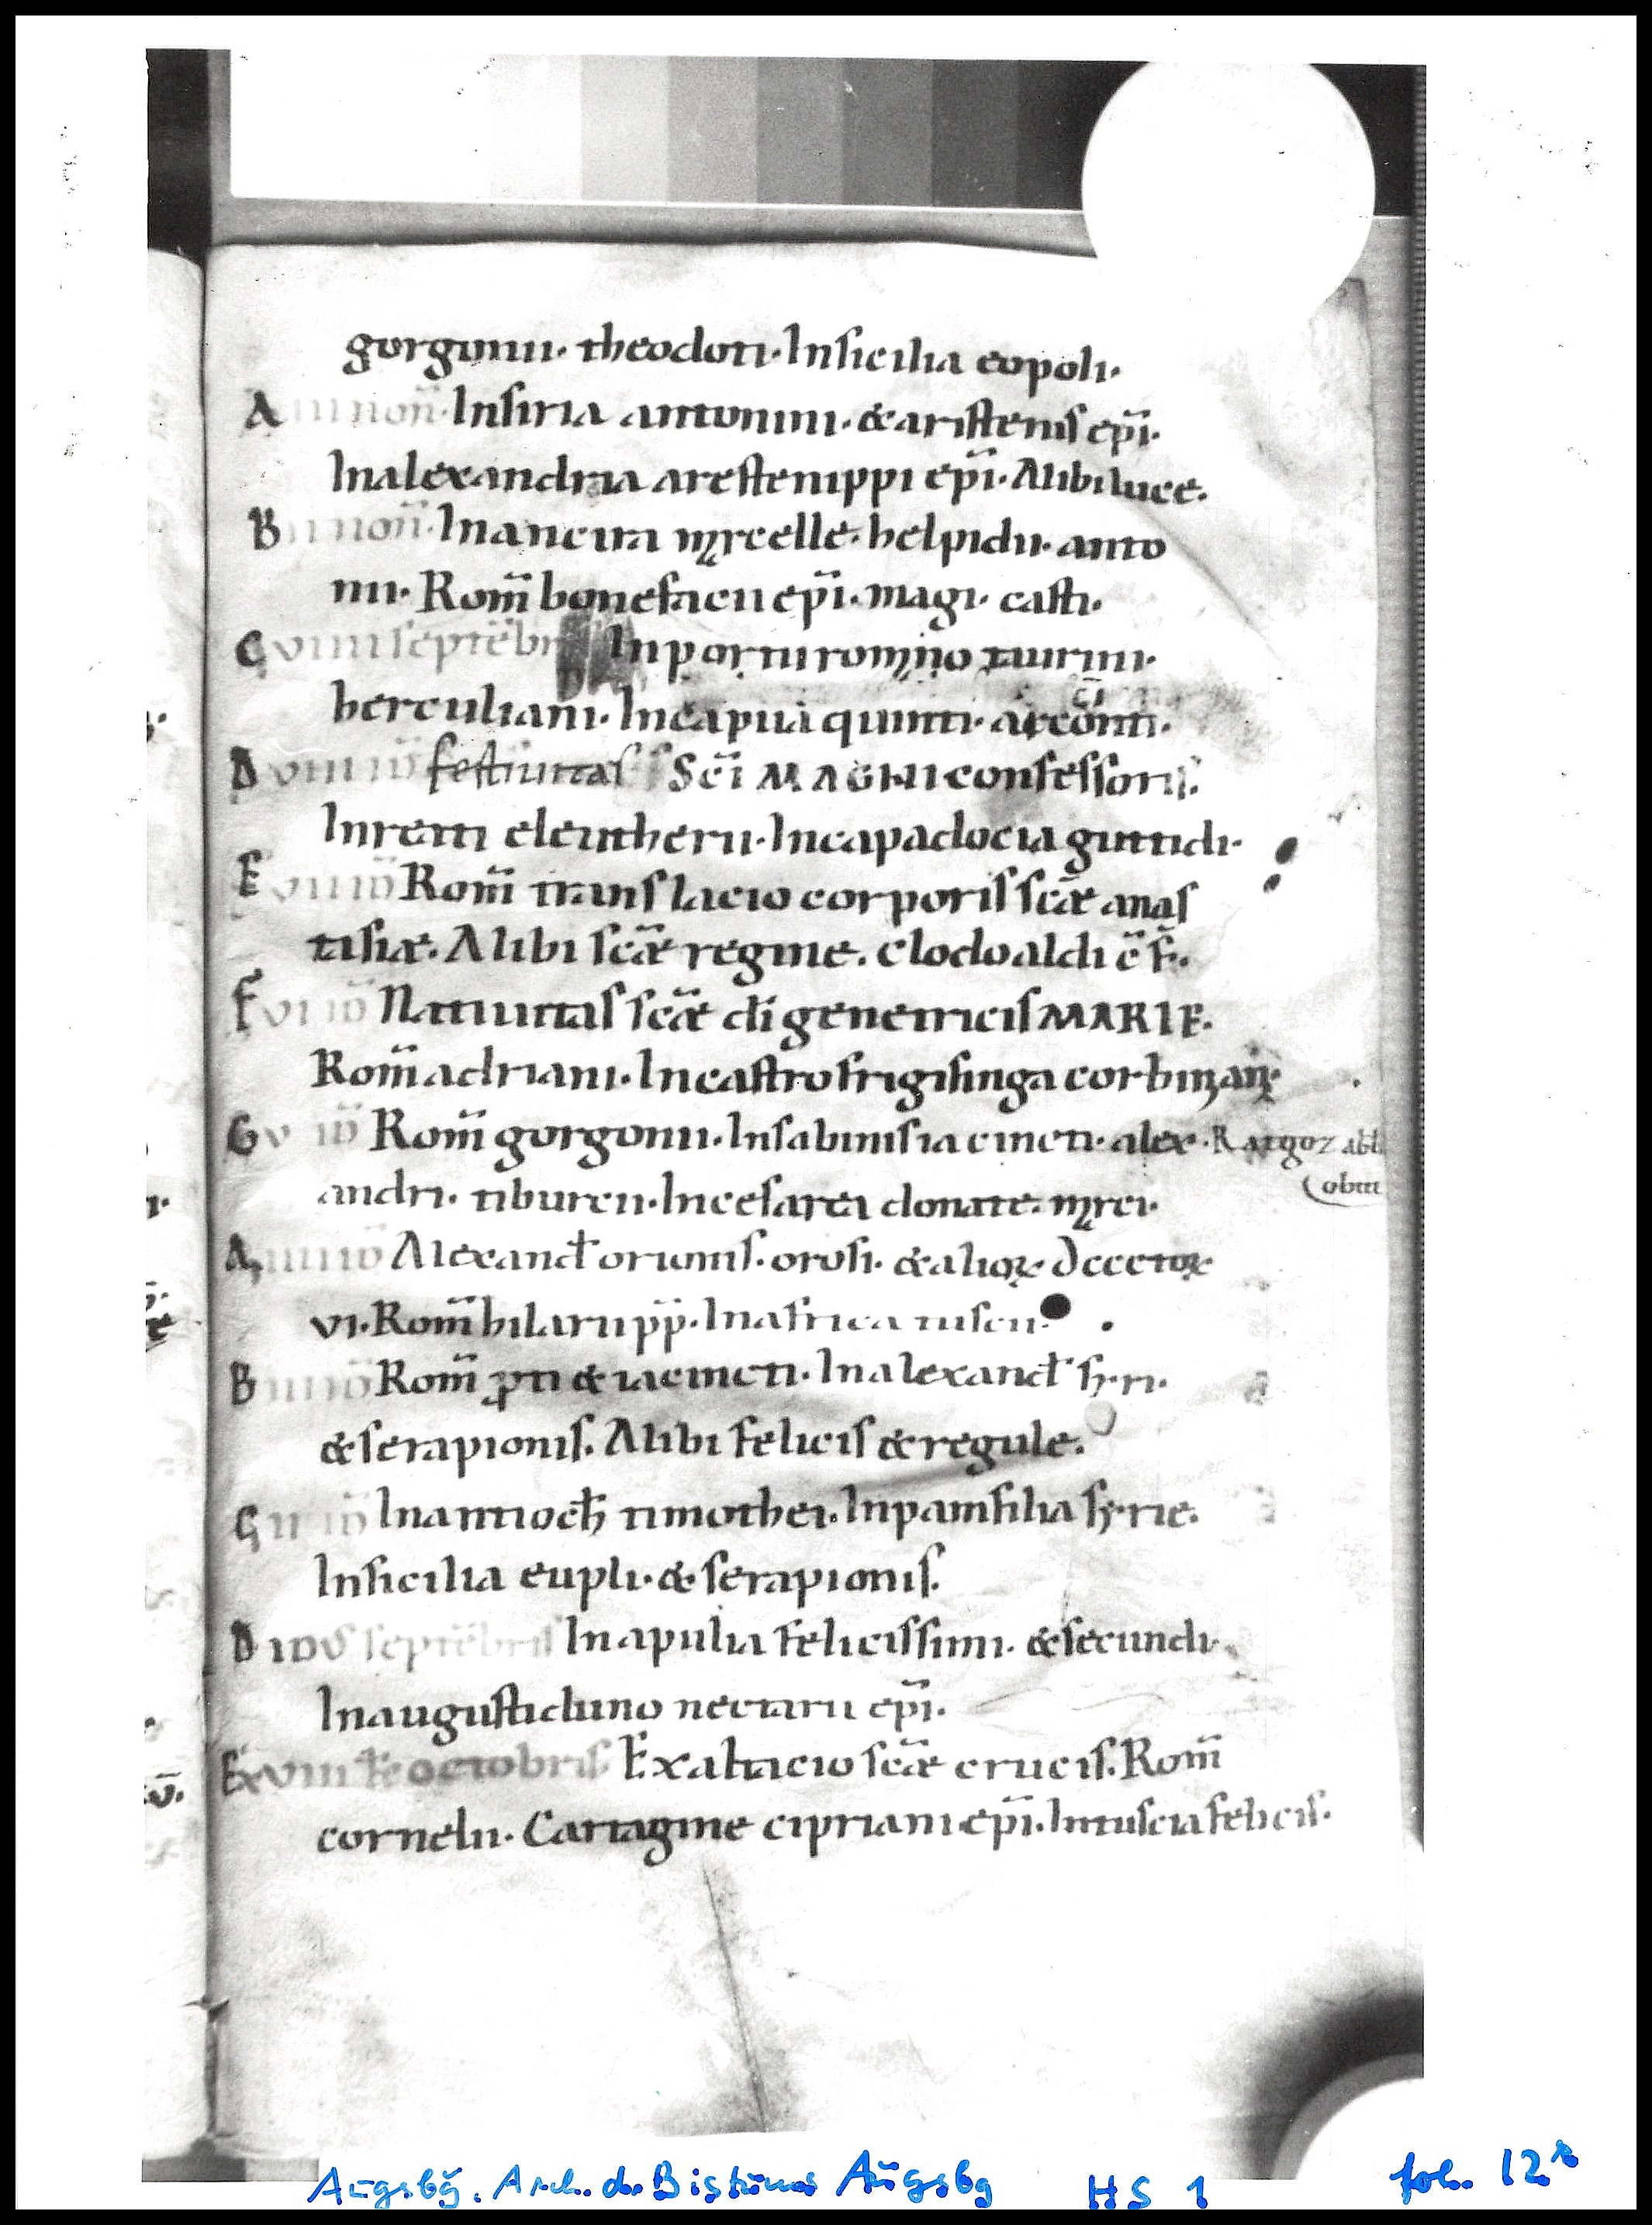 gorgonii. theodoti. Insicilia eopoli.
A iii non̄. Insiria antonini. & aristenis ep̄i.
Inalexandria arestenippi ep̄i. Alibi luce.
B ii non̄. Inancira marcelle. helpidii. anto
nii. Rom̄ bonefacii ep̄i. magi. casti.
C viiii septēbris Inportu romano taurini.
herculiani. Incapua quinti. arconti.
D viii id̄ festiuitas Sc̄i MAGNI confessoris.
Inreati eleutherii. Incapadocia guttidi.
E vii id̄ Rom̄ translacio corporis sc̄æ anas
tasiæ. Alibi sc̄æ regine. clodoaldi c̄f.
F vi id̄ Natiuitas sc̄æ dī genetricis MARIE.
Rom̄ adriani. Incastro frigisinga corbiniani.
G v id̄ Rom̄ gorgonii. Insabinis iacincti. alex.
Ratgoz abb.
obiit
andri. tiburcii. Incesarea donate. marci.
A iiii id̄ Alexanđ orionis. orosi. & alioꝝ dccctoꝝ
vi. Rom̄ hilarii pp̄. Inafrica
B iii id̄ Rom̄ proti & iacincti. Inalexanđ syri.
& serapionis. Alibi felicis & regule.
C ii id̄ Inantioch̄ timothei. Inpamfilia syrie.
Insicilia eupli. & serapionis.
D idus septēbris Inapulia felicissimi. & secundi.
Inaugustiduno nectarii ep̄i.
E xviii kł octobris. Exaltacio sc̄æ crucis. Rom̄
cornelii. Cartagine cipriani ep̄i. Intuscia felicis.
Augsbg. Arch. des Bistums Augsbg HS 1 fol. 12ʳ